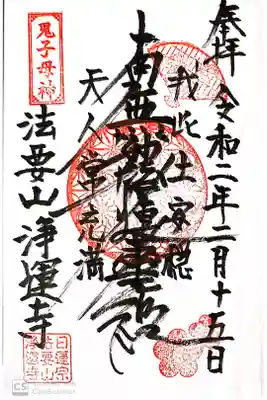 奉拝
令和二年二月十五日
我此土安穏
南無妙法蓮華経
天人常充満
鬼子母神
法要山 浄運寺
日蓮宗
法要山
浄運寺
CS CamScanner